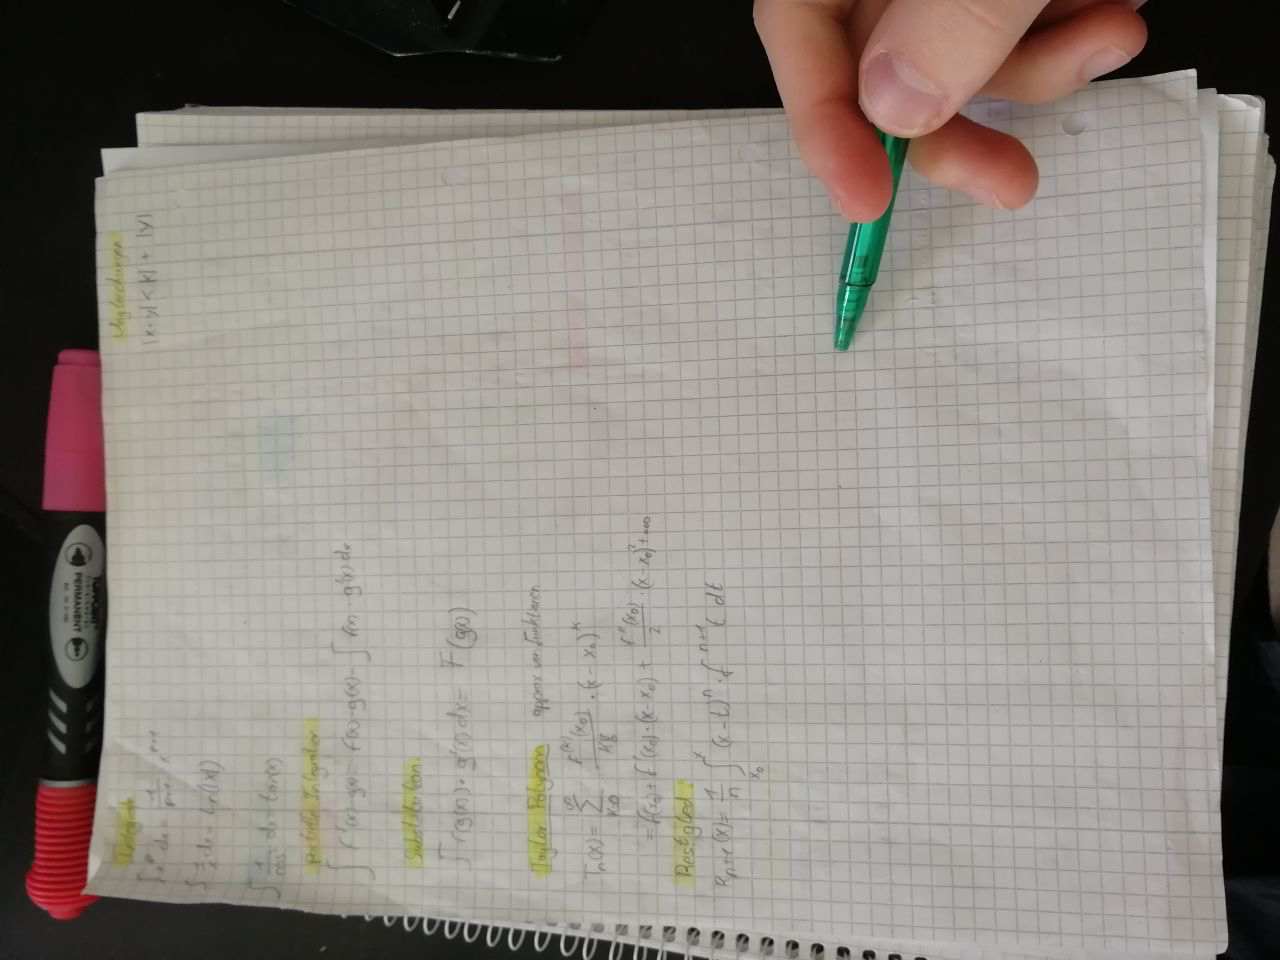 Integrale
∫ x^p dx = 1/(p+1) x^(p+1)
∫ 1/x dx = ln(|x|)
∫ 1/cos² dx = tan(x)
partielle Integration
∫ f'(x)·g(x) = f(x)·g(x) - ∫ f(x)·g'(x) dx
Substitution
∫ f(g(x))·g'(x) dx = F(g(x))
Taylor Polynom approx von Funktionen
T_n(x) = ∑_{k=0}^∞ f^(k)(x_0)/k! · (x - x_0)^k
= f(x_0) + f'(x_0)·(x - x_0) + f''(x_0)/2 · (x - x_0)² + ...
Restglied
R_{n+1}(x) = 1/n ∫_{x_0}^x (x - t)^n · f^{n+1} t dt
Ungleichungen
|x+y| ≤ |x| + |y|
TOPPOINT
PERMANENT